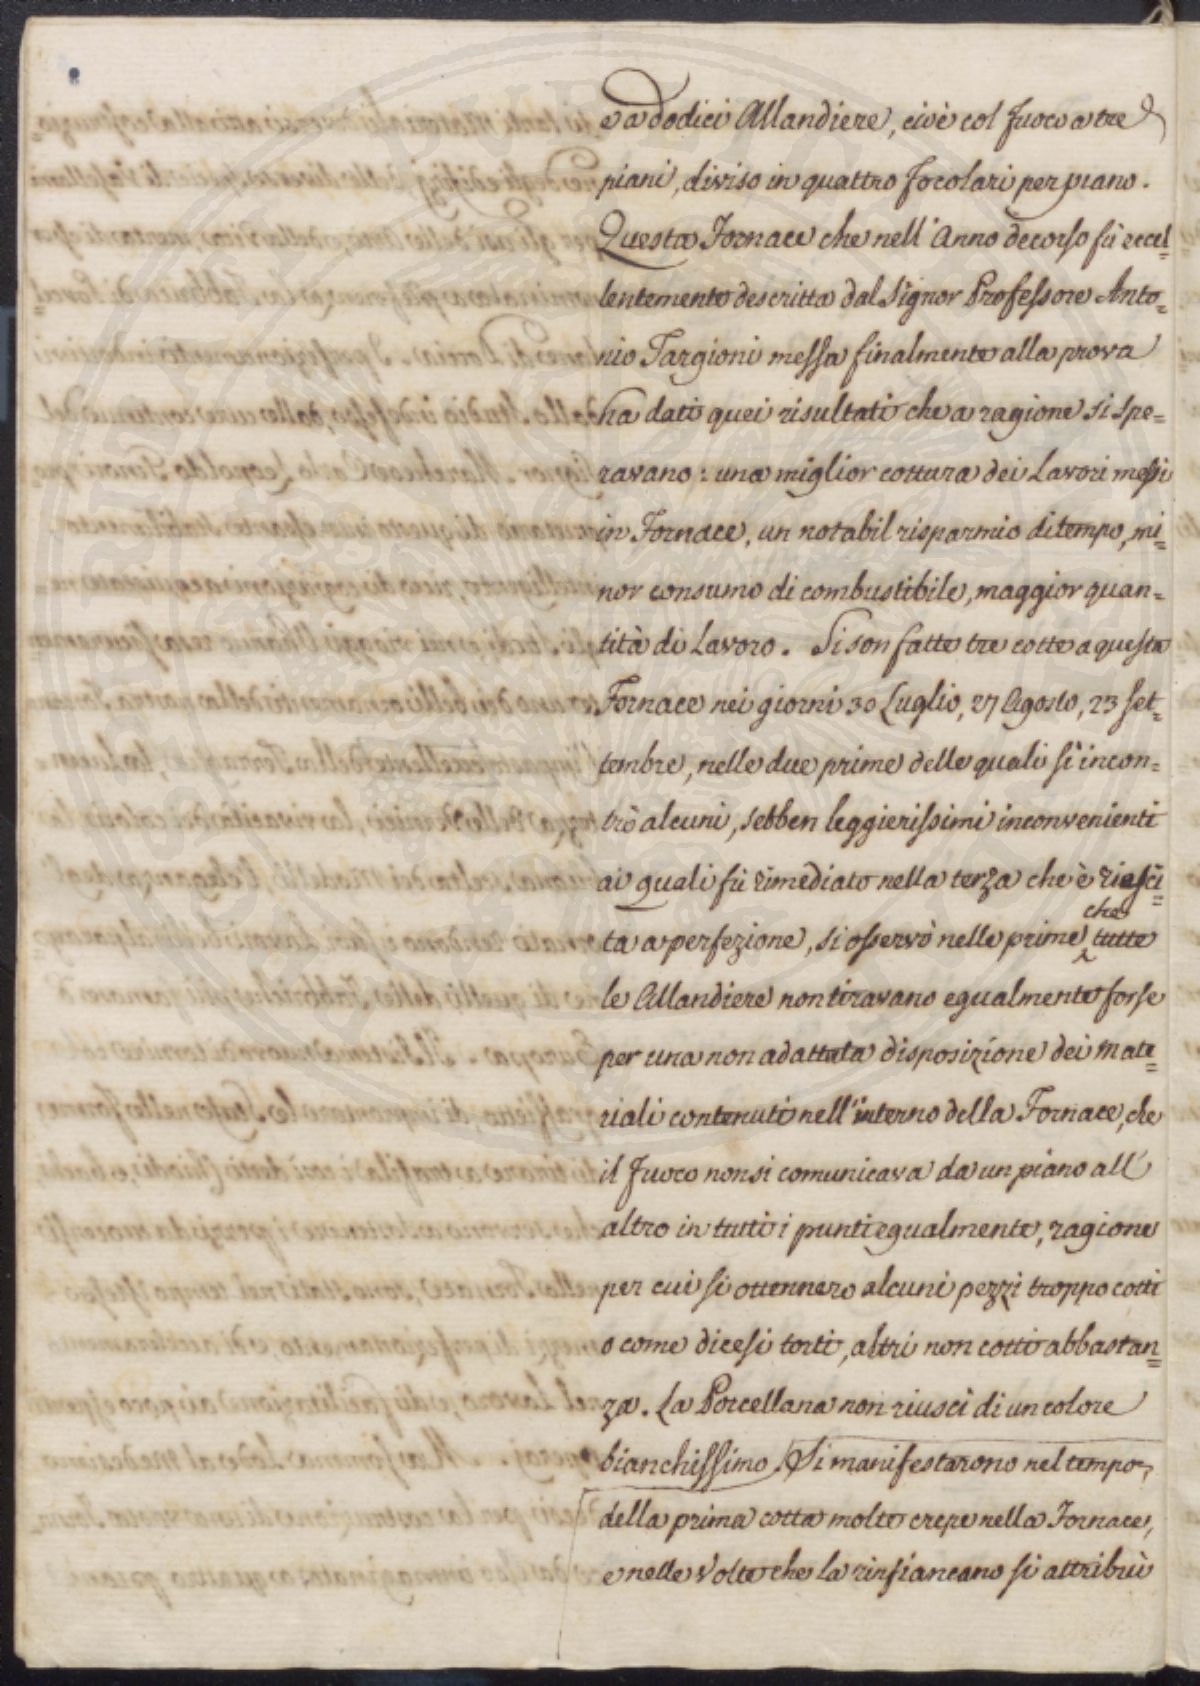 va dodici Allandiere, cioè col fuoco a tre
piani, diviso in quattro focolari per piano.
Questa Fornace che nell'Anno decorso fù eccel=
lentemente descritta dal Signor Professore Anto=
nio Targioni messa finalmente alla prova
ha dati quei risultati che a ragione si spe=
ravano: una miglior cottura dei Lavori messi
in Fornace, un notabil risparmio di tempo, mi=
nor consumo di combustibile, maggior quan=
tità di Lavoro. Si son fatte tre cotte a questa
Fornace nei giorni 30 Luglio, 27 Agosto, 23 Set=
tembre, nelle due prime delle quali si incon=
trò alcuni, sebben leggierissimi inconvenienti
ai quali fù rimediato nella terza che è riesci=
ta a perfezione, si osservò nelle prime che tutte
le Allandiere non tiravano egualmente forse
per una non adattata disposizione dei mate=
riali contenuti nell'interno della Fornace, che
il fuoco non si comunicava da un piano all'
altro in tutti i punti egualmente, ragione
per cui si ottennero alcuni pezzi troppo cotti
o come dicesi torti, altri non cotti abbastan=
za. La Porcellana non riuscì di un colore
bianchissimo. Si manifestarono nel tempo
della prima cotta molte crepe nella Fornace,
e nelle Volte che la rinfiancano si attribuì